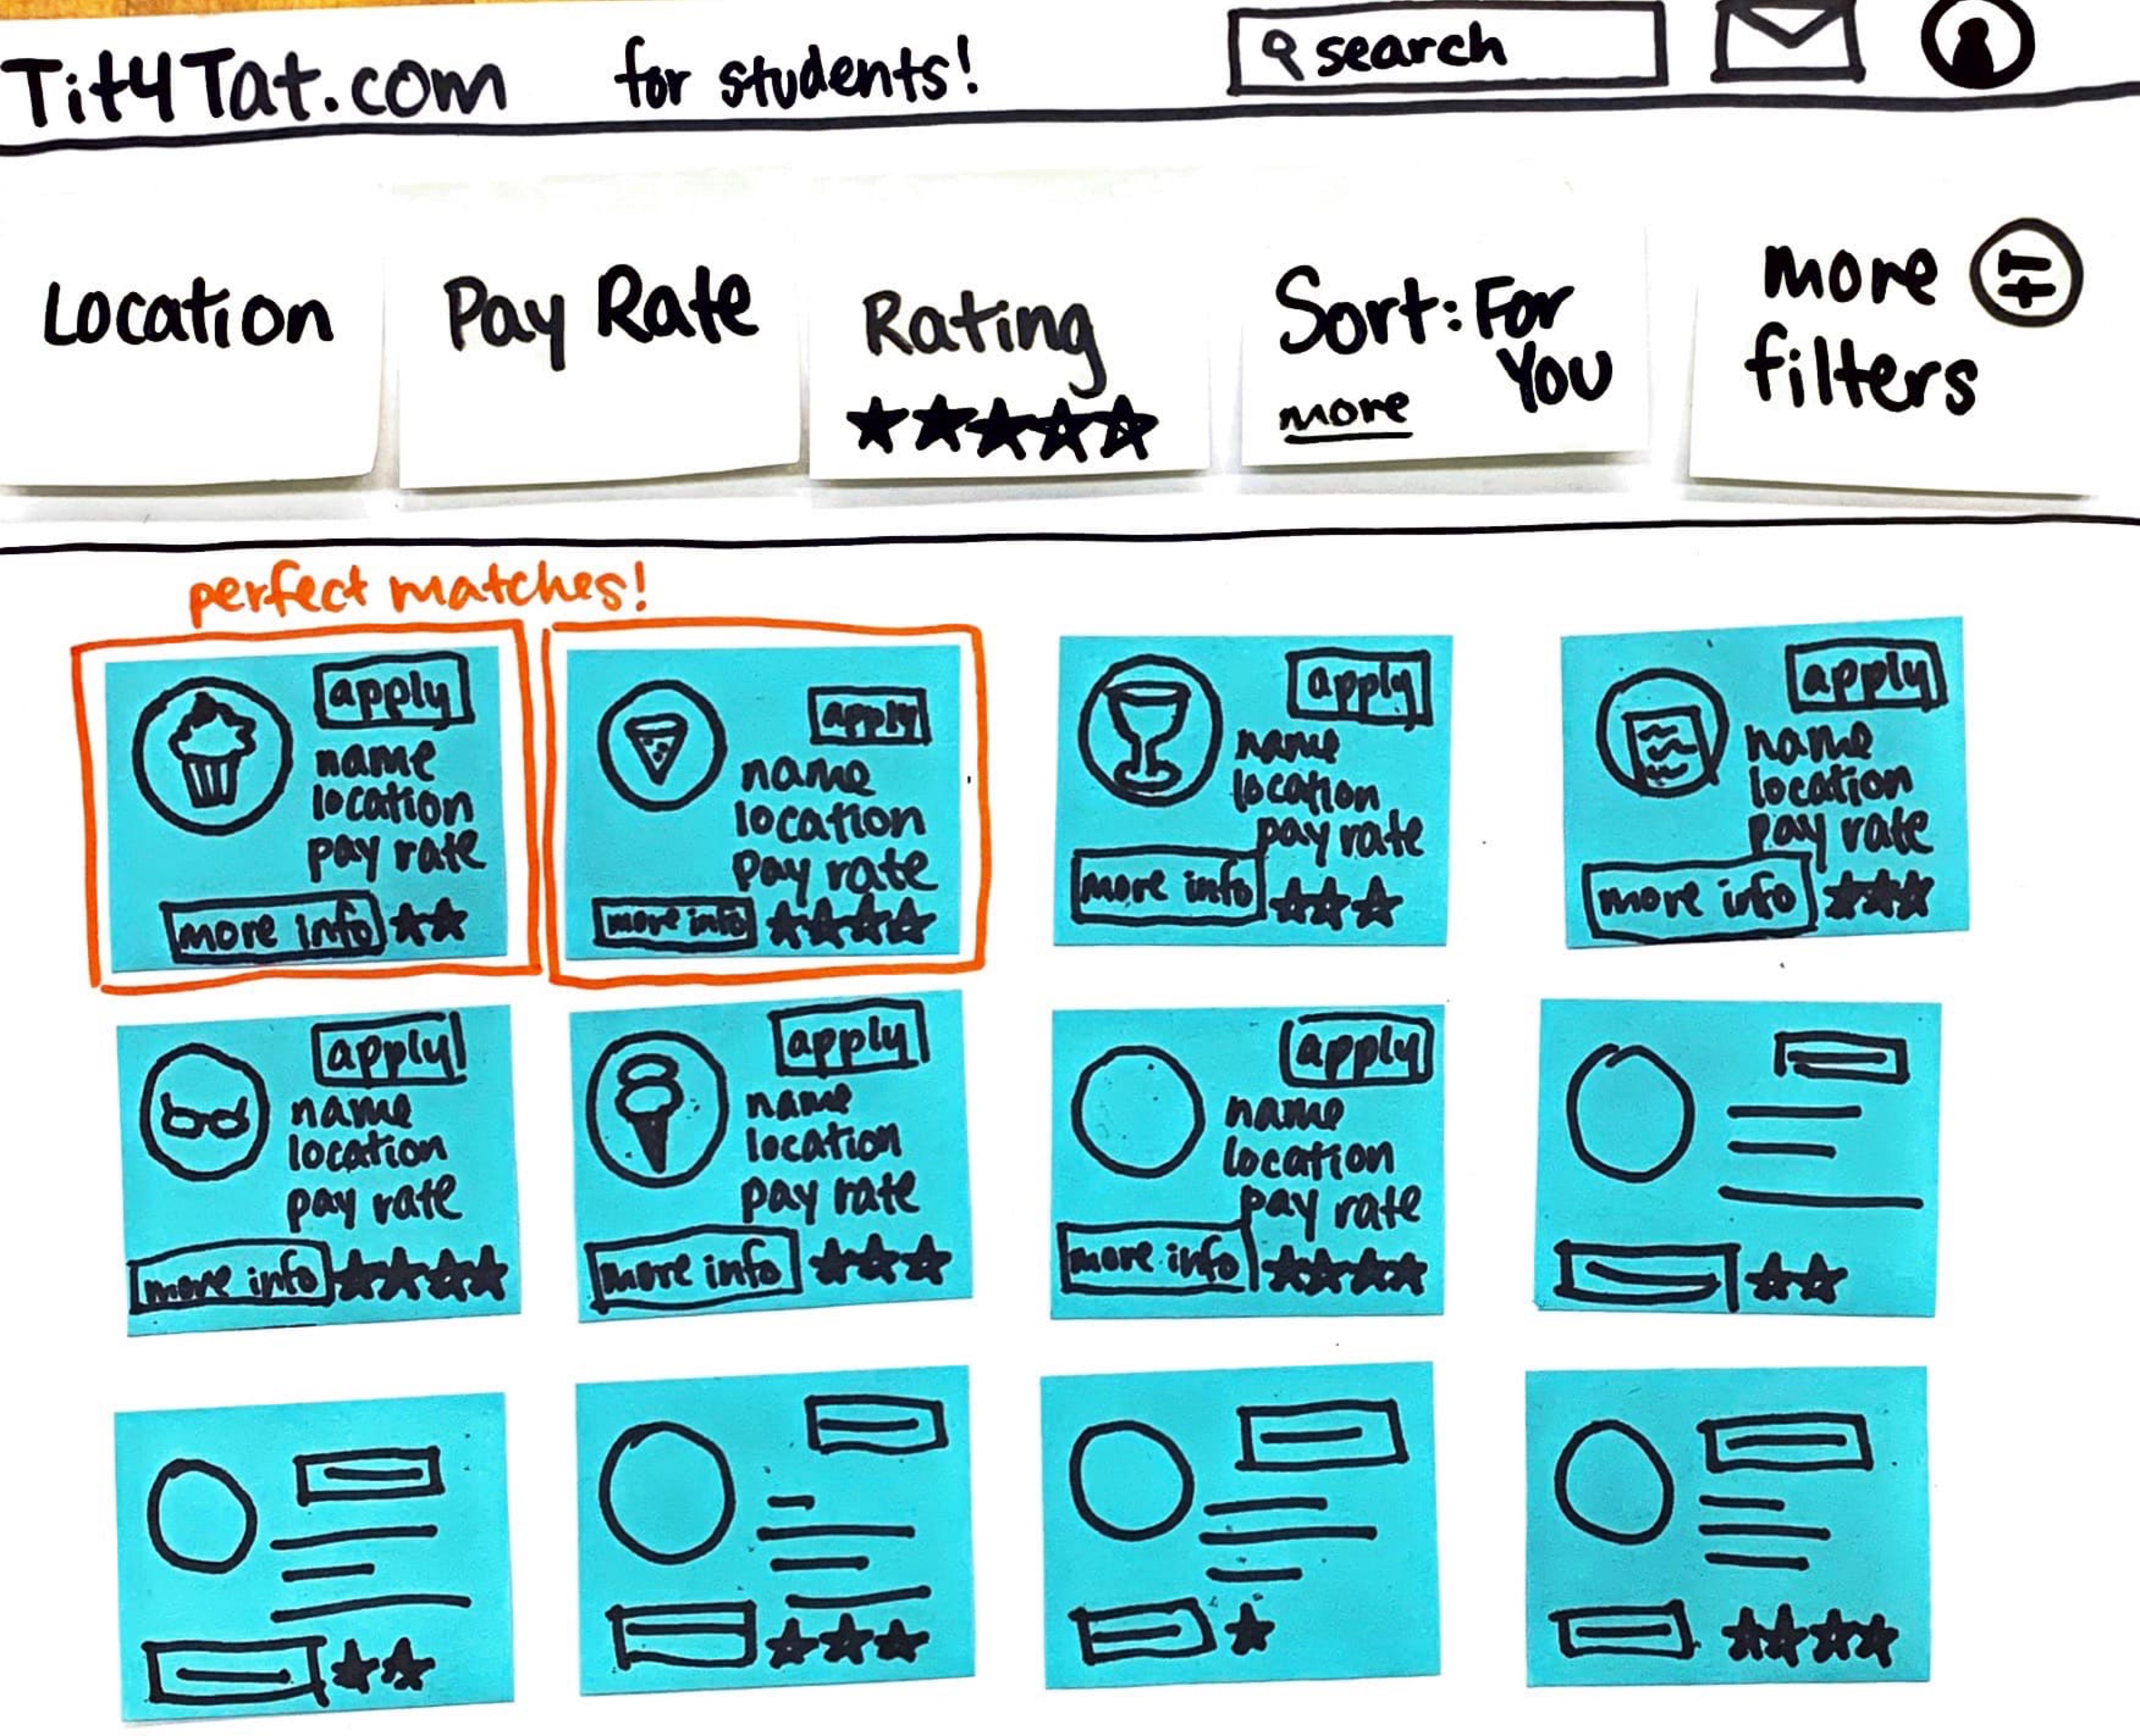 Tit4Tat.com for students! search
Location
Pay Rate
Rating
Sort: For
You
more
more
filters
perfect matches!
apply
name
location
pay rate
more info
apply
name
location
pay rate
more info
apply
name
location
pay rate
more info
apply
name
location
pay rate
more info
apply
name
location
pay rate
more info
apply
name
location
pay rate
more info
apply
name
location
pay rate
more info